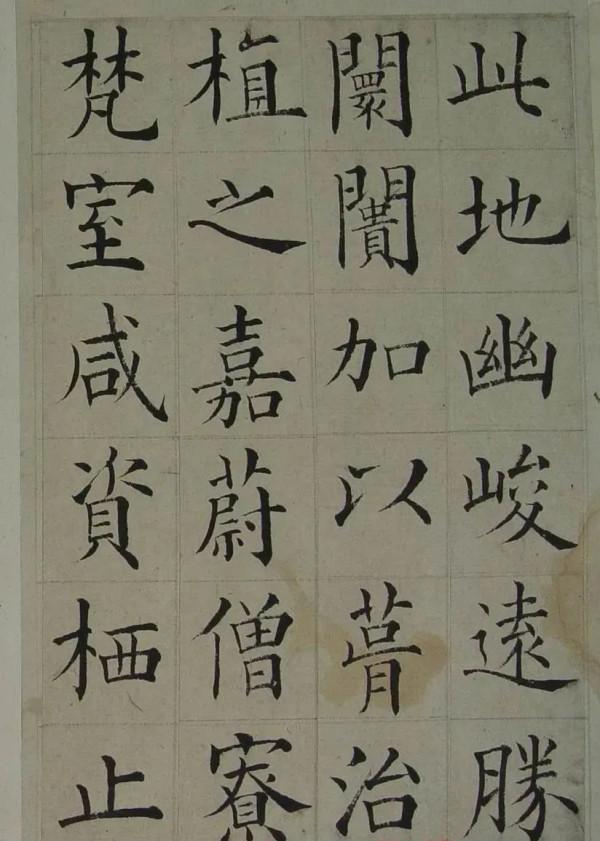 此地幽峻遠勝
闤闠加以菁治
植之嘉蔚僧寮
梵室咸資栖止